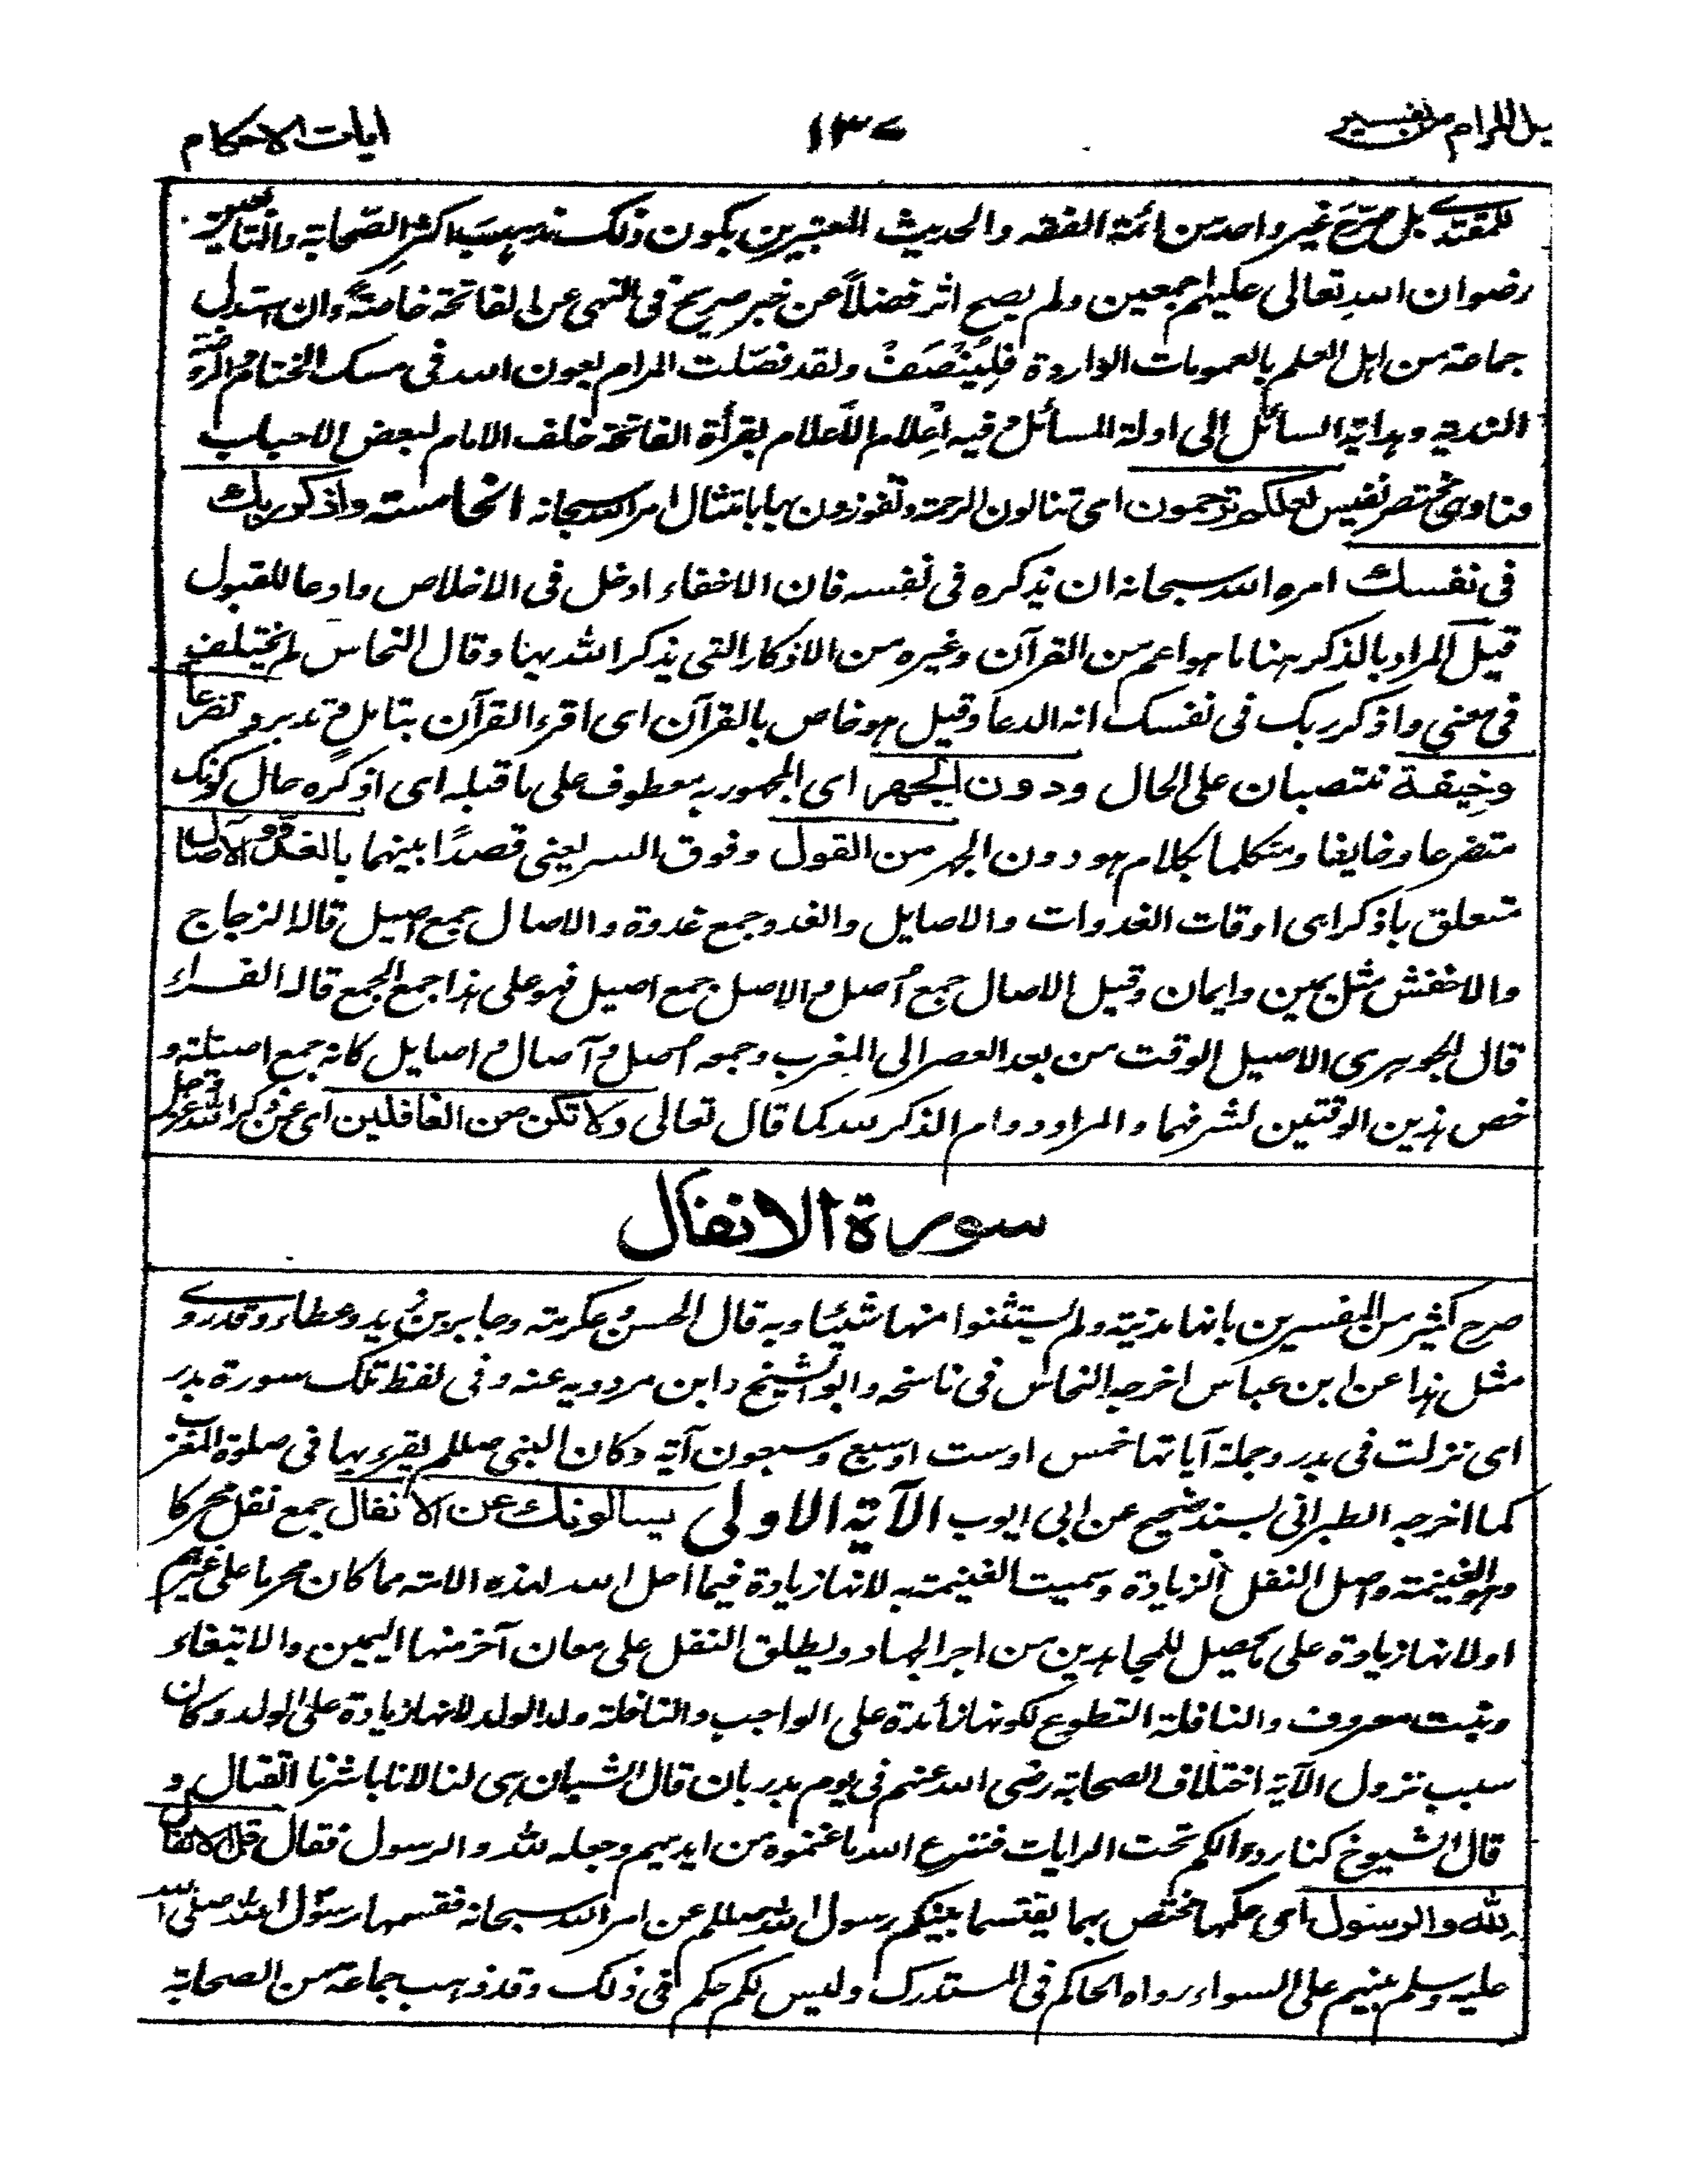 يل المرام من تفسير
١٣٧
ايات الاحكام
للمقتدي بل صرّح غير واحد من ائمة الفقه والحديث المعتبرين بكون ذلك مذهب اكثر الصّحابة والتابعين
رضوان الله تعالى عليهم اجمعين ولم يصح اثر فضلاً عن خبر صريح في النهي عن الفاتحة خاصةً وان استدل
جماعة من اهل العلم بالعمومات الواردة فلِيُنْصَفْ ولقد فصّلت المرام بعون الله في مسك الختام والروضة
الندية وهداية السائل الى ادلة المسائل وفيه اِعْلام الأعلام بقرأة الفاتحة خلف الامام لبعض الاحباب
مناوهي مختصر نفيس لعلكم ترحمون اى تنالون الرحمة وتفوزون بها بامتثال امر الله سبحانه الخامسة واذكر ربك
في نفسك امره الله سبحانه ان يذكره في نفسه فان الاخفاء ادخل في الاخلاص وادعا للقبول
قيل المراد بالذكر هنا ما هو اعم من القرآن وغيره من الاذكار التي يذكر الله بها وقال النحاس لم يختلف
في معنى واذكر ربك في نفسك انه الدعا وقيل هو خاص بالقرآن اى اقرء القرآن بتامل وتدبر وتضرعاً
وخيفة منتصبان على الحال ودون الجهر اى المجهور به معطوف على ما قبله اى اذكره حال كونك
متضرعا وخايفا ومتكلما بكلام هو دون الجهر من القول وفوق السر يعني قصدًا بينهما بالغدوّ والآصال
متعلق باذكر اى اوقات الغدوات والاصايل والغدو جمع غدوة والاصال جمع اصيل قاله الزجاج
والاخفش مثل يمين وايمان وقيل الاصال جمع أصل والاصل جمع اصيل فهو على هذا جمع الجمع قاله الفراء
قال الجوهري الاصيل الوقت من بعد العصر الى المغرب وجمعه اُصل وآصال واصايل كانه جمع اصيلة و
خص هذين الوقتين لشرفهما والمراد دوام الذكر لله كما قال تعالى ولا تكن من الغافلين اى عن ذكر الله عز وجل
سورة الانفال
صرح كثير من المفسرين بانها مدنية ولم يستثنوا منها شيئا وبه قال الحسن وعكرمة وجابر بن زيد وعطاء وقد روي
مثل هذا عن ابن عباس اخرجه النحاس في ناسخه وابو الشيخ وابن مردويه عنه وفي لفظ تلك سورة بدر
اى نزلت في بدر وجملة آياتها خمس اوست اوسبع وسبعون آية وكان النبي صللم يقرء بها في صلوة المغرب
كما اخرجه الطبراني بسند صحيح عن ابي ايوب الآية الاولى يسألونك عن الانفال جمع نفل محركا
وهو الغنيمة واصل النفل الزيادة وسميت الغنيمة به لانها زيادة فيما احل الله لهذه الامة مما كان محرما على غيرهم
اولانها زيادة على ما يحصل للمجاهدين من اجر الجهاد ويطلق النفل على معان آخر منها اليمين والابتغاء
ونبت معروف والنافلة التطوع لكونها زائدة على الواجب والنافلة ولد الولد لانها زيادة على الولد وكان
سبب نزول الآية اختلاف الصحابة رضى الله عنهم في يوم بدر بان قال الشبان هى لنا لانا باشرنا القتال و
قال الشيوخ كنا ردءالكم تحت الرايات فنزع الله ما غنموه من ايديهم وجعله لله والرسول فقال قل الانفال
لله والرسول اى حكمها مختص بهما يقتسما بينكم رسول الله صللم عن امر الله سبحانه فقسمها رسول الله صلى الله
عليه وسلم بينهم على السواء رواه الحاكم في المستدرك وليس لكم حكم في ذلك وقد ذهب جماعة من الصحابة